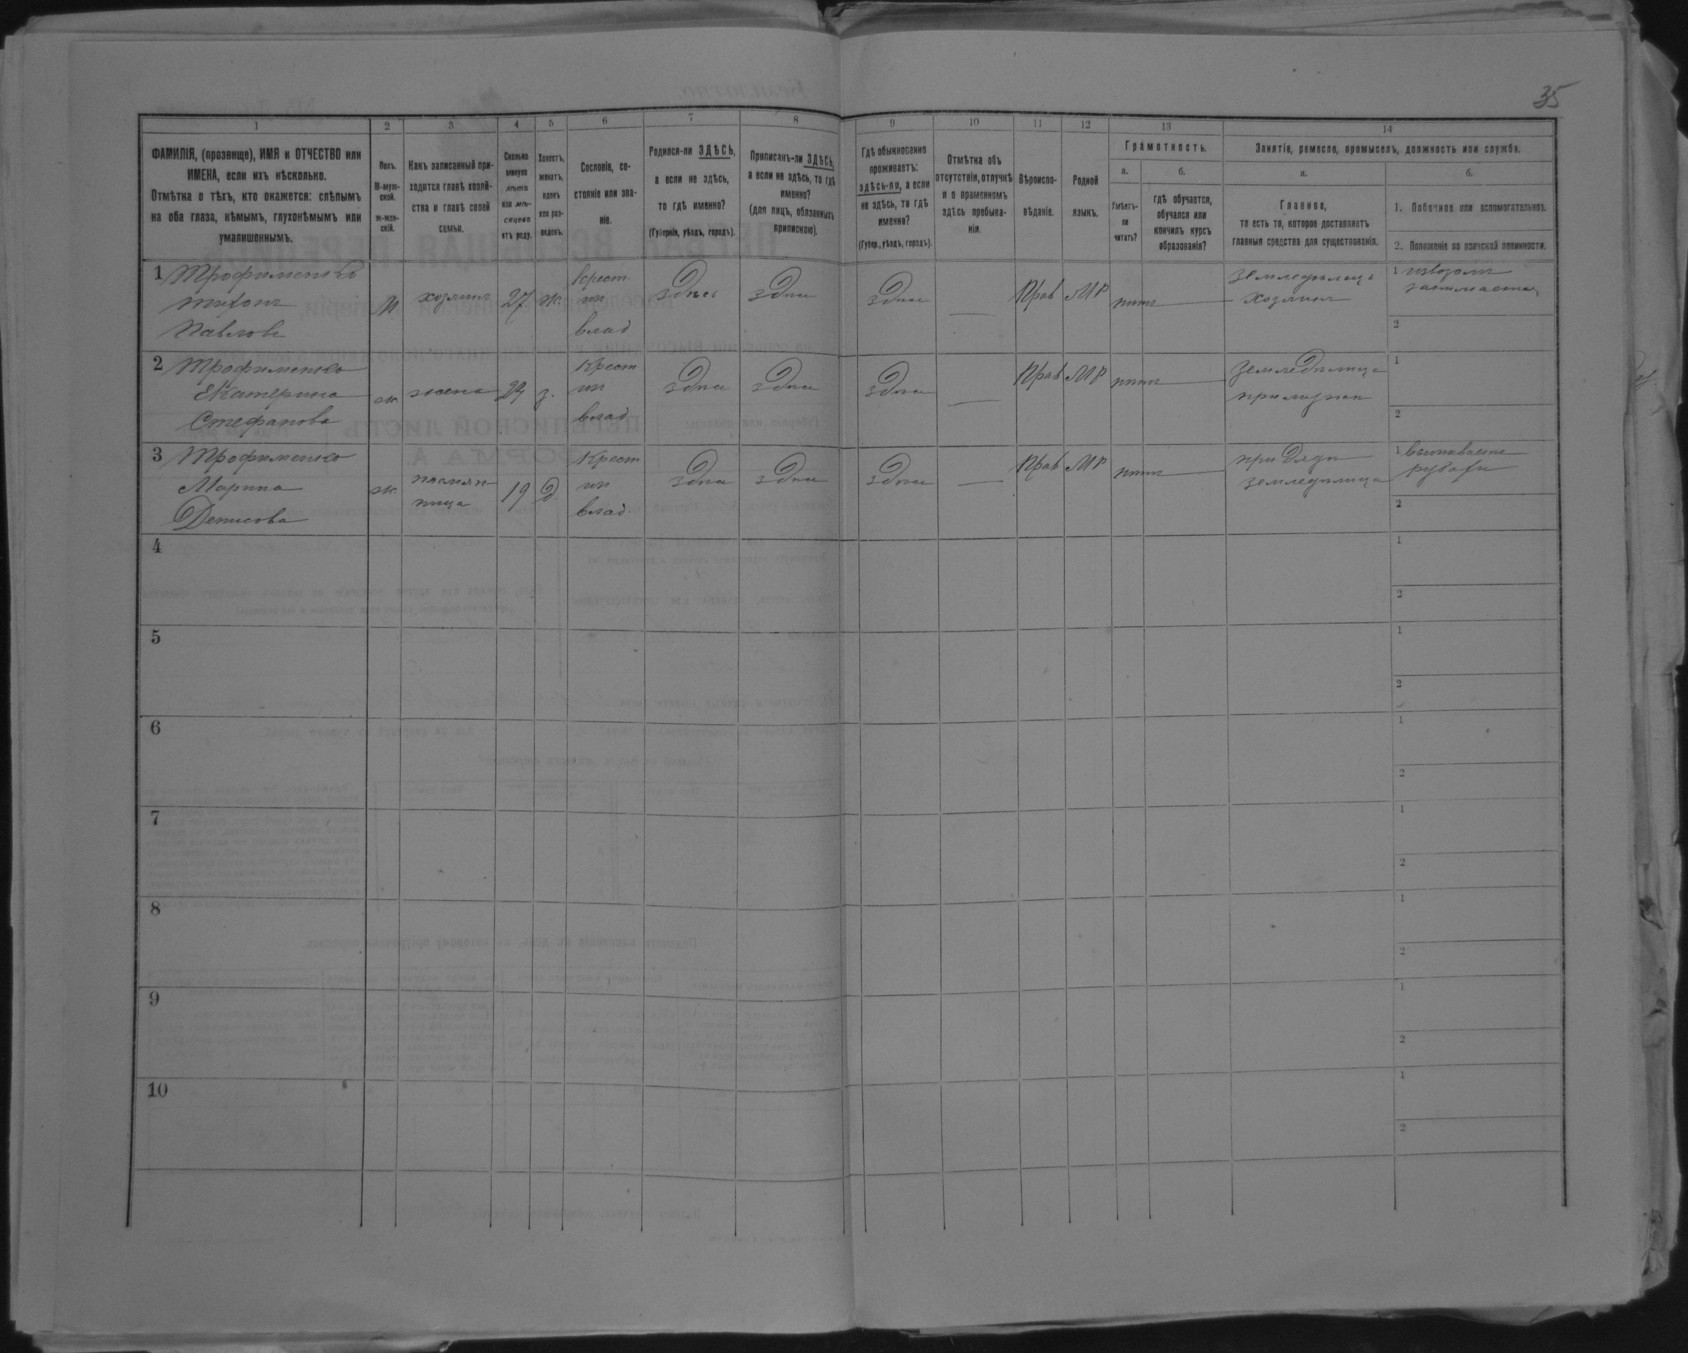 35
1
2
3
4
5
6
7
8
9
10
11
12
13
14
ФАМИЛІЯ, (прозвище), ИМЯ и ОТЧЕСТВО или
ИМЕНА, если ихъ нѣсколько.
Отмѣтка о тѣхъ, кто окажется: слѣпымъ
на оба глаза, нѣмымъ, глухонѣмымъ или
умалишеннымъ.
Полъ.
М-муж-
ской.
ж-жен-
скій.
Какъ записанный при-
ходится главѣ хозяй-
ства и главѣ своей
семьи.
Сколько
минуло
лѣтъ
или мѣ-
сяцевъ
отъ роду.
Холостъ,
женатъ,
вдовъ
или раз-
веденъ.
Сословіе, со-
стояніе или зва-
ніе.
Родился-ли ЗДѢСЬ,
а если не здѣсь,
то гдѣ именно?
(Губернія, уѣздъ, городъ).
Приписанъ-ли ЗДѢСЬ,
а если не здѣсь, то гдѣ
именно?
(для лицъ, обязанныхъ
припискою).
Гдѣ обыкновенно
проживаетъ:
здѣсь-ли, а если
не здѣсь, то гдѣ
именно?
(Губер., уѣздъ, городъ).
Отмѣтка объ
отсутствіи, отлучкѣ
и о временномъ
здѣсь пребыва-
ніи.
Вѣроиспо-
вѣданіе.
Родной
языкъ.
Грамотность.
а.
б.
Умѣетъ-
ли
читать?
гдѣ обучается,
обучался или
кончилъ курсъ
образованія?
Занятіе, ремесло, промыселъ, должность или служба.
а.
б.
Главное,
то есть то, которое доставляетъ
главныя средства для существованія.
1. Побочное или вспомогательное.
2. Положеніе по воинской повинности.
1 Трофименко
Тихонъ
Павловъ
М
хозяинъ
27
ж.
Крест
из
влад
здѣсь
здѣсь
здѣсь
—
Прав
МР
нѣтъ
земледѣлецъ
хозяинъ
1 извозомъ
2
2 Трофименко
Екатерина
Стефанова
ж
жена
29
з.
Крест
из
влад
здѣсь
здѣсь
здѣсь
—
Прав
МР
нѣтъ
земледѣлица
при мужѣ
1
2
3 Трофименко
Марина
Денисова
ж
племян
ница
19
д
Крест
из
влад.
здѣсь
здѣсь
здѣсь
—
Прав
МР
нѣтъ
при дядѣ
земледѣлица
1
2
4
1
2
5
1
2
6
1
2
7
1
2
8
1
2
9
1
2
10
1
2